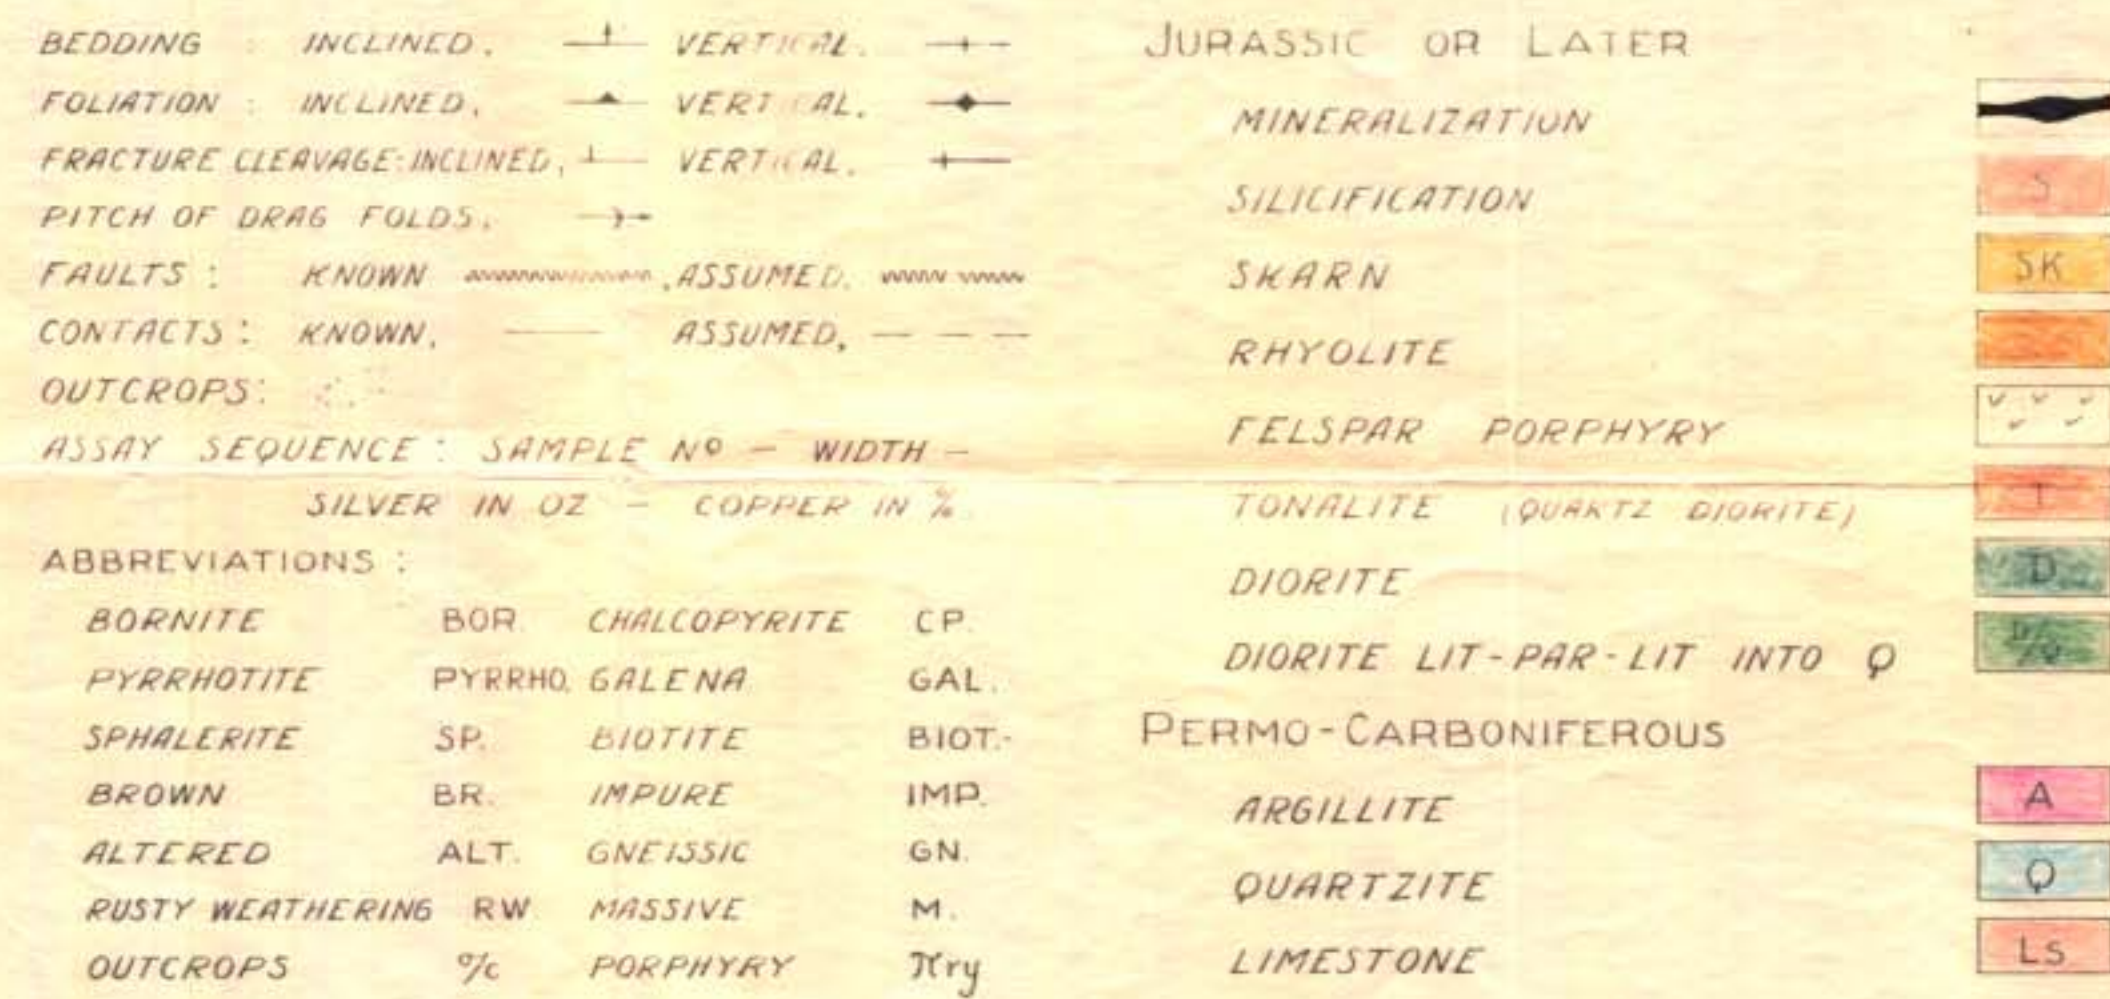 BEDDING : INCLINED. VERTICAL.
FOLIATION : INCLINED, VERTICAL.
FRACTURE CLEAVAGE: INCLINED, VERTICAL.
PITCH OF DRAG FOLDS.
FAULTS : KNOWN , ASSUMED.
CONTACTS : KNOWN. ASSUMED,
OUTCROPS:
ASSAY SEQUENCE : SAMPLE Nº – WIDTH –
SILVER IN OZ – COPPER IN %
ABBREVIATIONS :
BORNITE BOR. CHALCOPYRITE CP.
PYRRHOTITE PYRRHO. GALENA GAL.
SPHALERITE SP. BIOTITE BIOT.
BROWN BR. IMPURE IMP.
ALTERED ALT. GNEISSIC GN.
RUSTY WEATHERING RW MASSIVE M.
OUTCROPS o/c PORPHYRY πry
JURASSIC OR LATER
MINERALIZATION
SILICIFICATION S
SKARN SK
RHYOLITE
FELSPAR PORPHYRY
TONALITE (QUARTZ DIORITE) T
DIORITE D
DIORITE LIT-PAR-LIT INTO Q D/Q
PERMO-CARBONIFEROUS
ARGILLITE A
QUARTZITE Q
LIMESTONE Ls